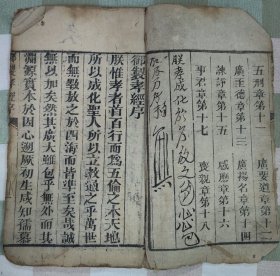 五刑章第十一　廣要道章第十二
廣至德章第十三　廣揚名章第十四
諫諍章第十五　感應章第十六
事君章第十七　喪親章第十八
朕孝成化於
御製孝經序
朕惟孝者首百行而為五倫之本天地
所以成化聖人所以立教通之乎萬世
而無斁放之於四海而皆準至矣哉誠
無以加矣然其廣大雖包乎無外而其
淵源實本於因心遡厥初生咸知孺慕